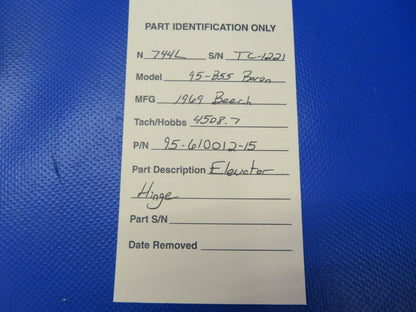 PART IDENTIFICATION ONLY
N 744L S/N TC-1221
Model 95-B55 Baron
MFG 1969 Beech
Tach/Hobbs 4508.7
P/N 95-610012-15
Part Description Elevator
Hinge
Part S/N
Date Removed